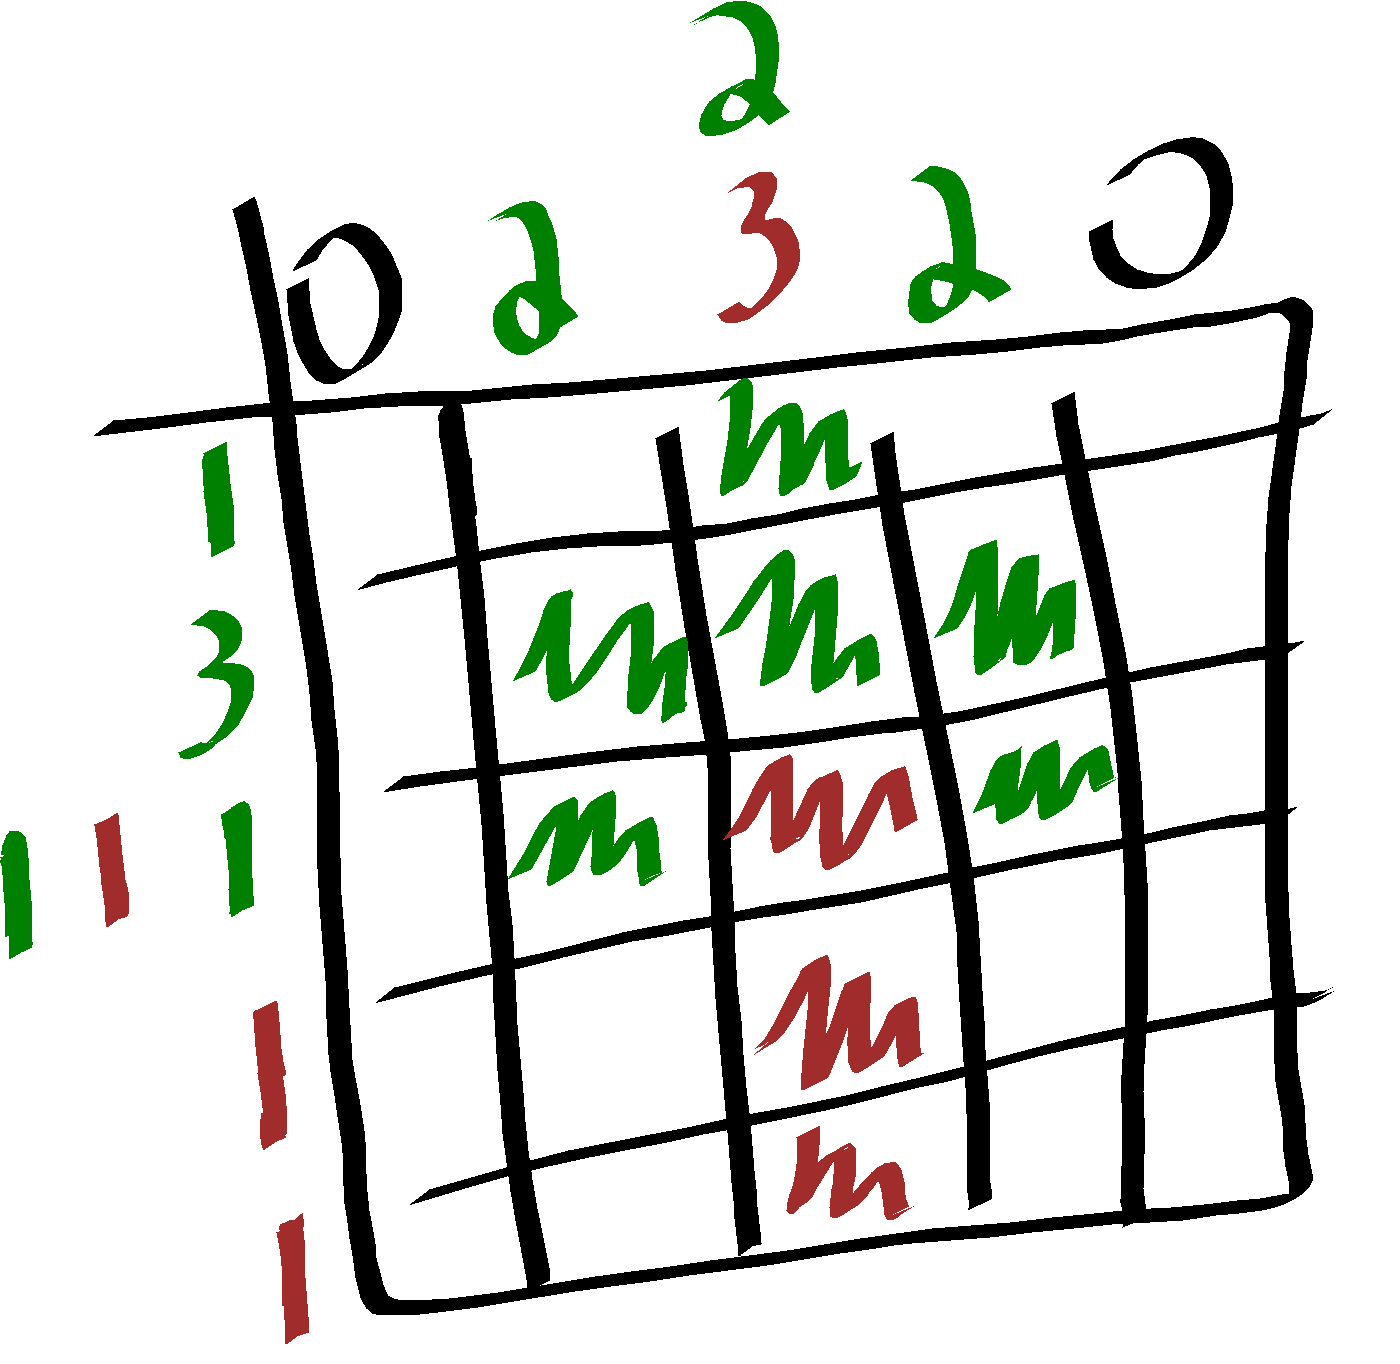 2
0 2 3 2 0
1
3
1 1 1
1
1